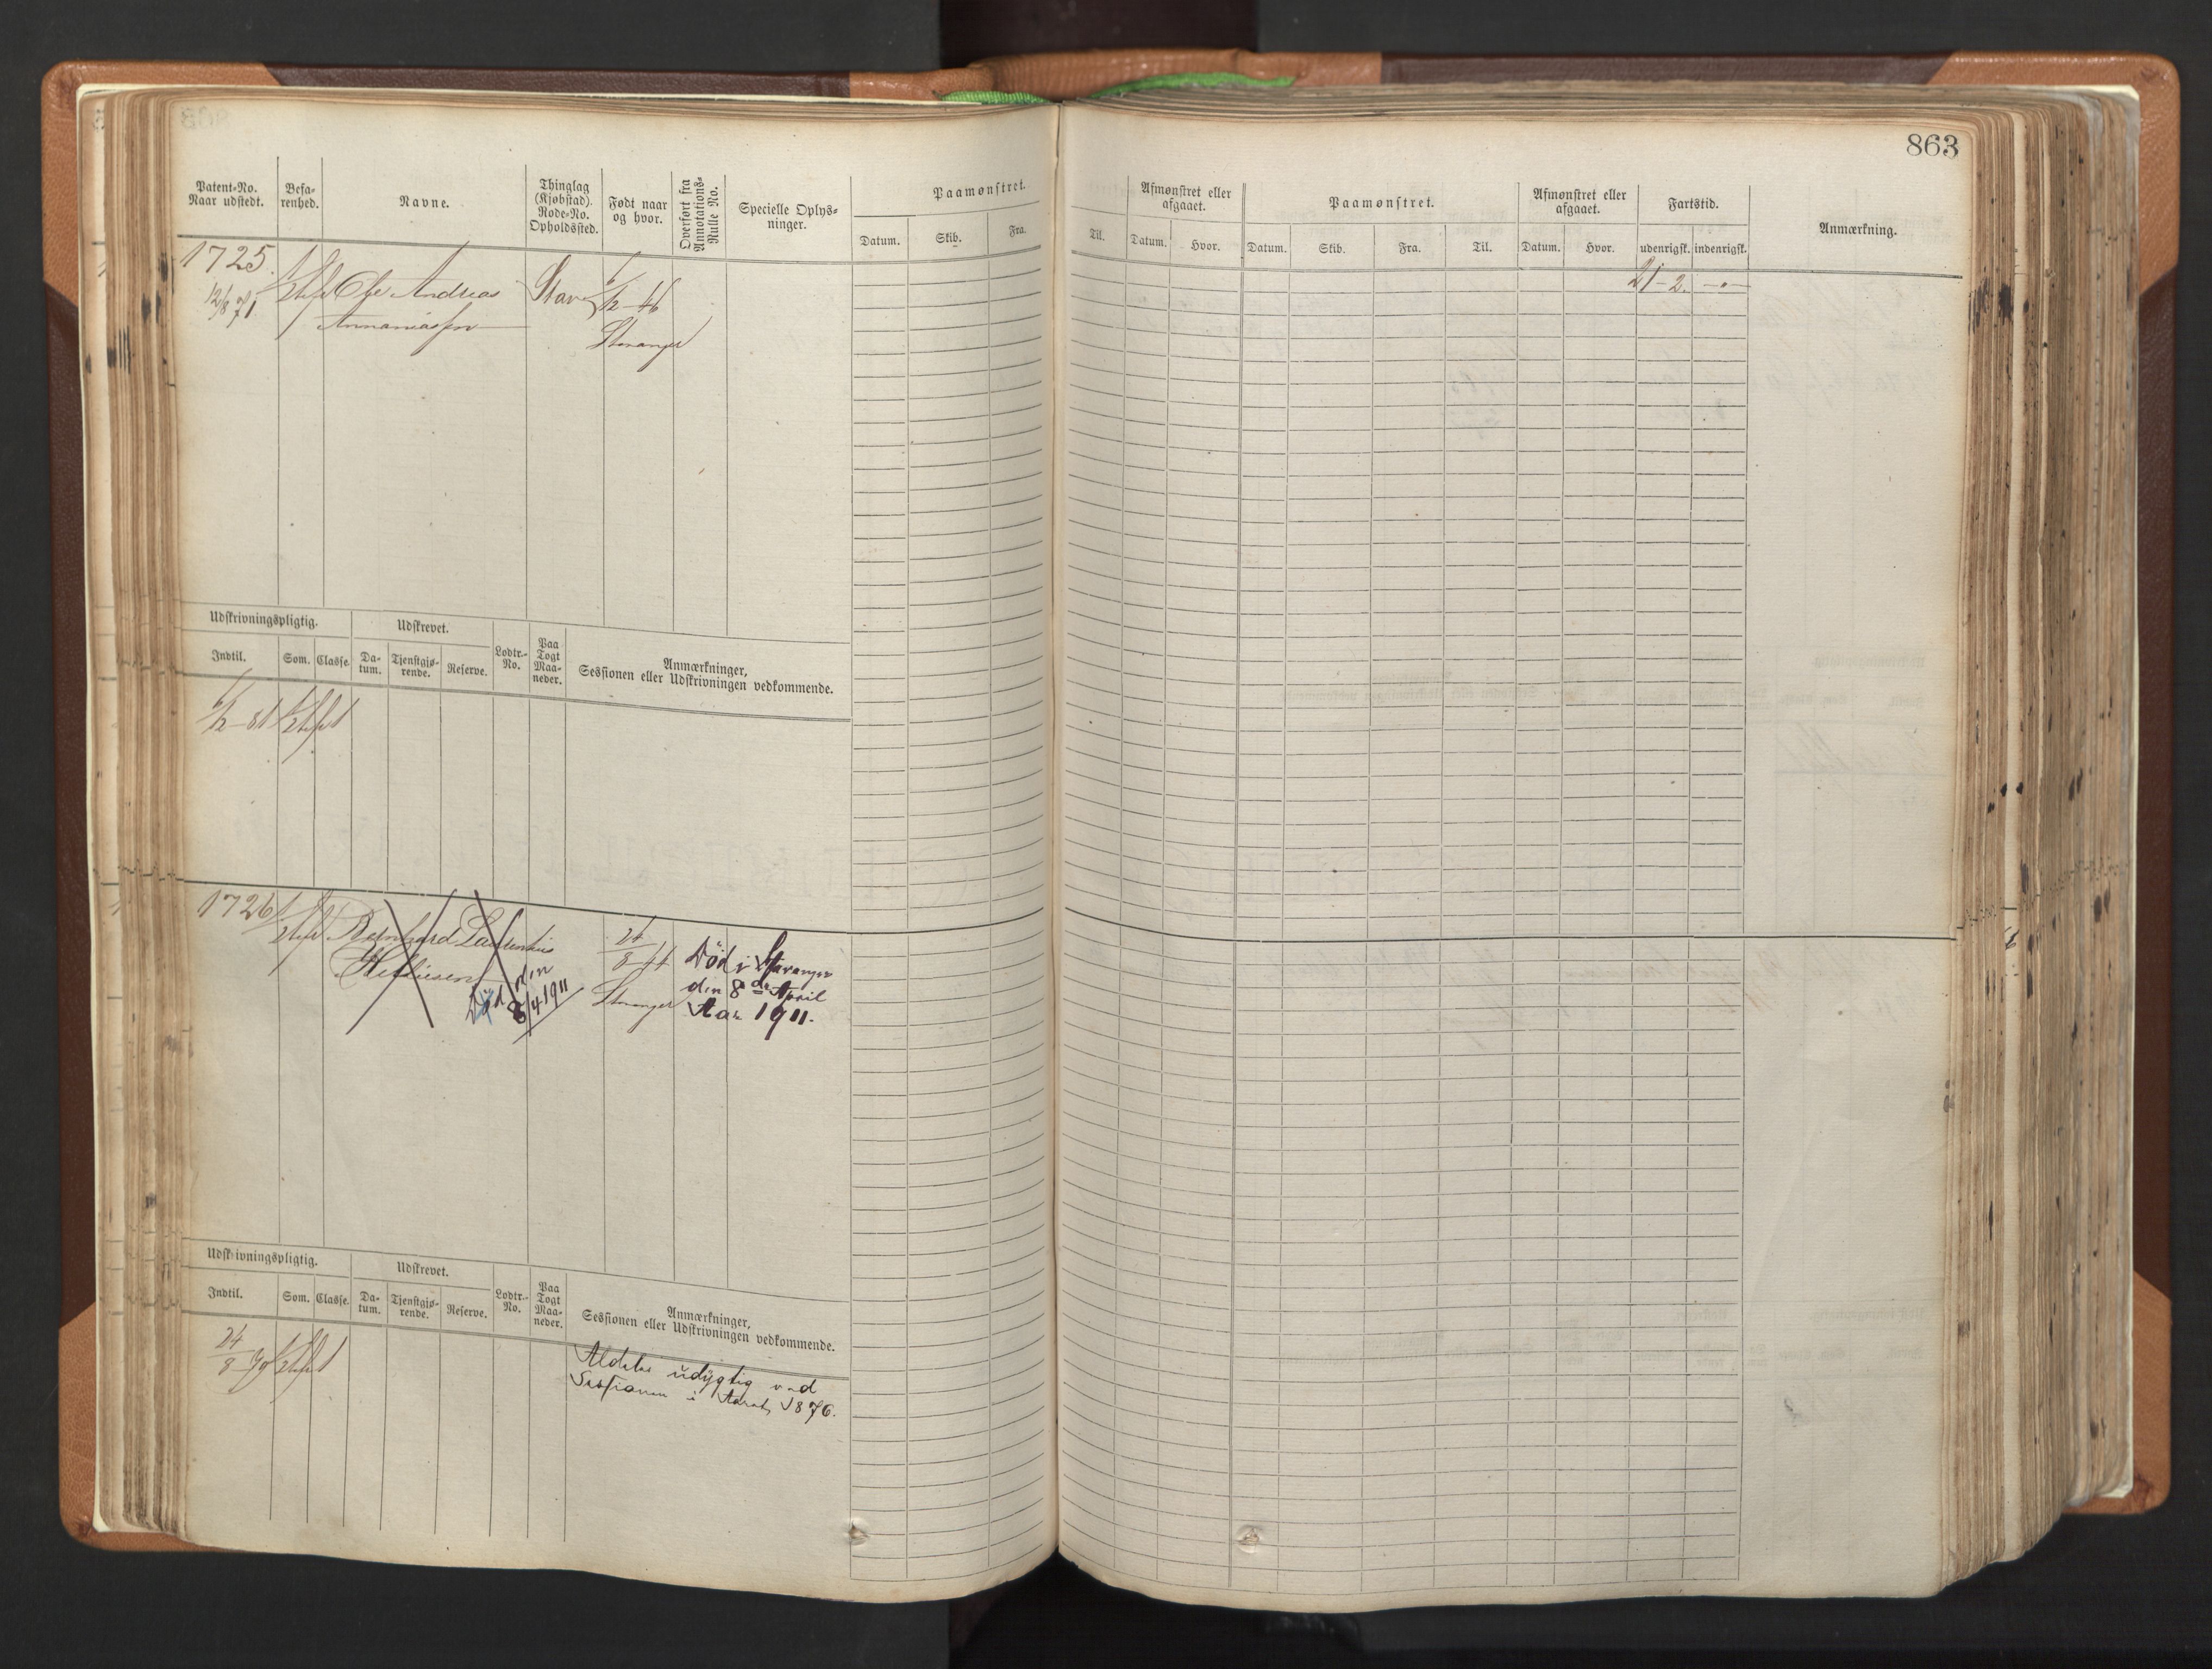 863
Patent-No.
Naar udstedt.
Befa-
renhed.
Navne.
Thinglag
(Kjøbstad).
Rode-No.
Opholdssted.
Født naar
og hvor.
Overført fra
Annotations-
Rulle No.
Specielle Oplys-
ninger.
Paamønstret.
Datum. Skib. Fra.
Til.
Afmønstret eller
afgaaet.
Datum. Hvor.
Paamønstret.
Datum. Skib. Fra. Til.
Afmønstret eller
afgaaet.
Datum. Hvor.
Fartstid.
udenrigsk. indenrigsk.
Anmærkning.
1725.
12/8 71
Ole Andreas
Annaniassen
Stav
6/12 – 46
Stavanger
21 – 2.
Udskrivningspligtig.
Indtil. Som. Classe.
Udskrevet.
Da-
tum.
Tjenstgjø-
rende.
Reserve.
Lodtr.-
No.
Paa
Togt
Maa-
neder.
Anmærkninger,
Sessionen eller Udskrivningen vedkommende.
6/12 – 81
1726
Bernhard Laurentius
Død den
8/4 1911
24/8 44
Stavanger
Død i Stavanger
den 8de April
Aar 1911.
Udskrivningspligtig.
Indtil. Som. Classe.
Udskrevet.
Da-
tum.
Tjenstgjø-
rende.
Reserve.
Lodtr.-
No.
Paa
Togt
Maa-
neder.
Anmærkninger,
Sessionen eller Udskrivningen vedkommende.
24/8 79
udygtig ved
Sessionen i Aaret 1876.